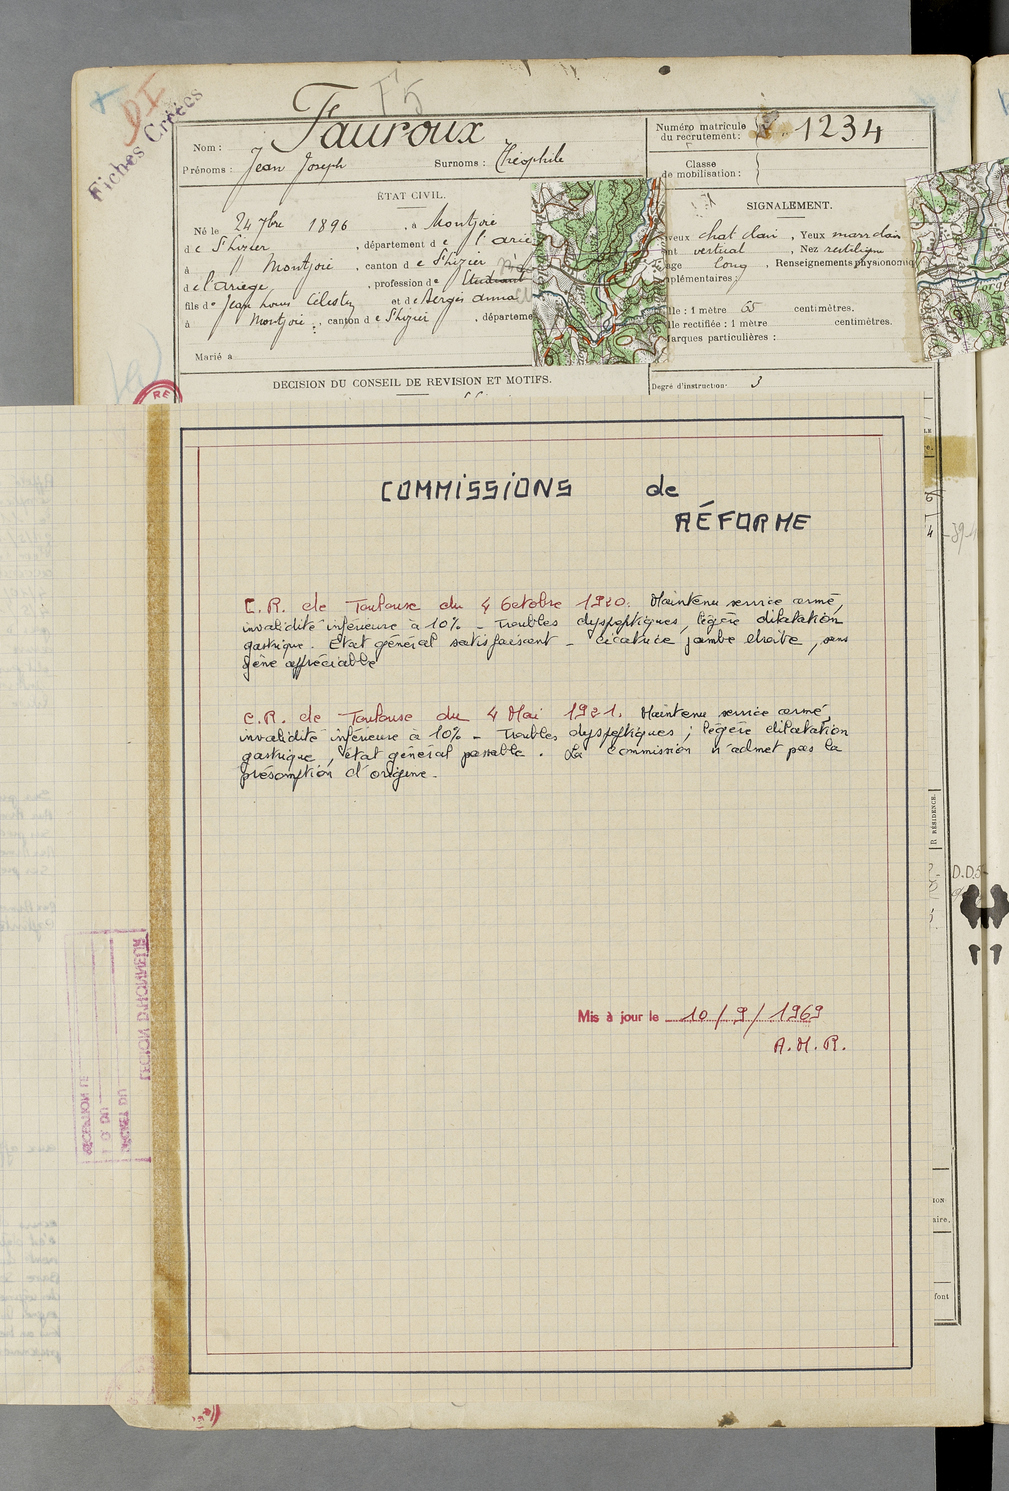 Fiches Créées
F5
Nom : Fauroux
Prénoms : Jean Joseph Surnoms : Théophile
Numéro matricule du recrutement : 1234
Classe de mobilisation :
ÉTAT CIVIL.
Né le 24 7bre 1896, à Montjoie
d e St Lizier, département d e l'arie
à Montjoie, canton d e St Lizier
d e l'ariège, profession d e Etudiant
fils de Jean Louis Célestin et de Bergès anna
à Montjoie, canton d e St Lizier, départeme
Marié à
SIGNALEMENT.
veux chat clair, Yeux marr clair
nt vertical, Nez rectiligne
age long, Renseignements physionomiq
plémentaires :
lle : 1 mètre 65 centimètres.
lle rectifiée : 1 mètre centimètres.
arques particulières :
DÉCISION DU CONSEIL DE REVISION ET MOTIFS.
Degré d'instruction : 3
COMMISSIONS de
RÉFORME
C.R. de Toulouse du 4 Octobre 1920. Maintenu service armé,
invalidité inférieure à 10% - Troubles dyspeptiques, légère dilatation
gastrique. Etat général satisfaisant - cicatrice jambe droite, sans
gêne appréciable
C.R. de Toulouse du 4 Mai 1921. Maintenu service armé,
invalidité inférieure à 10% - Troubles dyspeptiques ; légère dilatation
gastrique, état général passable. La Commission n'admet pas la
présomption d'origine -
Mis à jour le 10/9/1969
A.M.R.
R RÉSIDENCE.
D.D.5
LEGION D'HONNEUR
DECRET DU
J.O DU